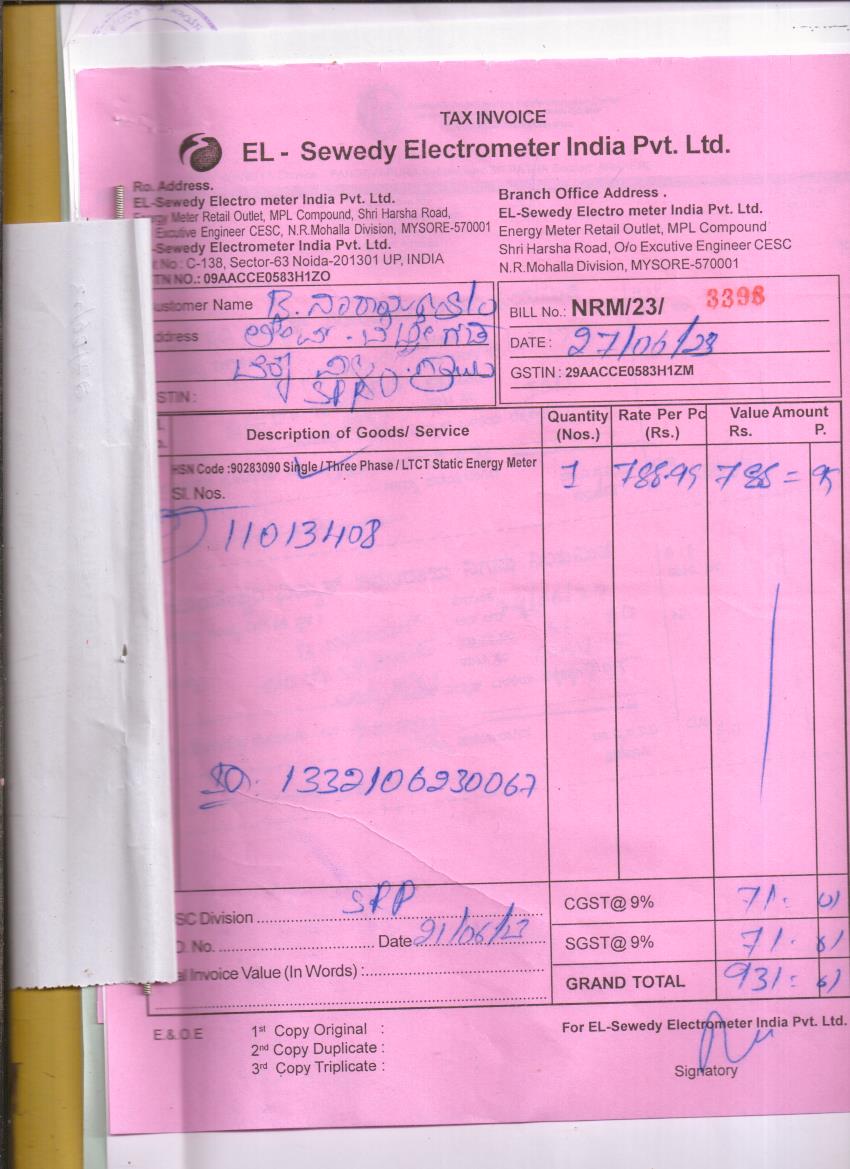 TAX INVOICE
EL - Sewedy Electrometer India Pvt. Ltd.
Ro. Address.
EL-Sewedy Electro meter India Pvt. Ltd.
Energy Meter Retail Outlet, MPL Compound, Shri Harsha Road,
Excutive Engineer CESC, N.R.Mohalla Division, MYSORE-570001
-Sewedy Electrometer India Pvt. Ltd.
No : C-138, Sector-63 Noida-201301 UP, INDIA
TN NO.: 09AACCE0583H1ZO
Branch Office Address .
EL-Sewedy Electro meter India Pvt. Ltd.
Energy Meter Retail Outlet, MPL Compound
Shri Harsha Road, O/o Excutive Engineer CESC
N.R.Mohalla Division, MYSORE-570001
ustomer Name
ddress
STIN : SRP
BILL No.: NRM/23/ 3398
DATE : 27/06/23
GSTIN : 29AACCE0583H1ZM
Description of Goods/ Service
Quantity (Nos.)
Rate Per Pc (Rs.)
Value Amount
Rs. P.
HSN Code :90283090 Single / Three Phase / LTCT Static Energy Meter
1 788.95 788 = 95
Sl. Nos.
11013408
1332106230067
SC Division SRP
No. Date 21/06/23
al Invoice Value (In Words) :
CGST@ 9% 71
SGST@ 9% 71
GRAND TOTAL 931
E.& O.E
1st Copy Original :
2nd Copy Duplicate :
3rd Copy Triplicate :
For EL-Sewedy Electrometer India Pvt. Ltd.
Signatory